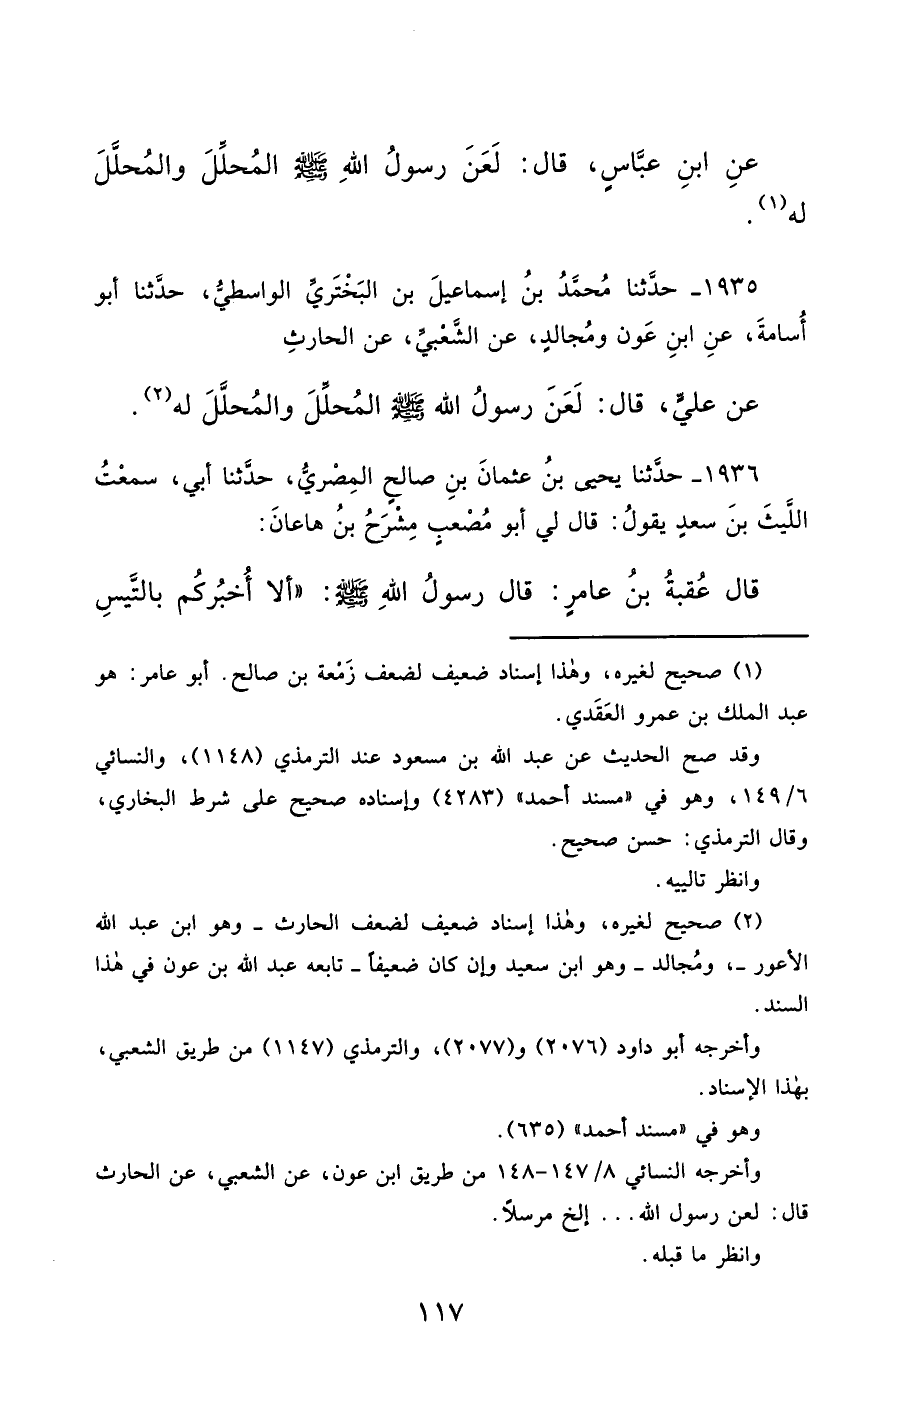 عنِ ابنِ عبَّاسٍ، قال: لَعَنَ رسولُ اللهِ ﷺ المُحلِّلَ والمُحلَّلَ
له(١).
١٩٣٥ـ حدَّثنا مُحمَّدُ بنُ إسماعيلَ بن البَخْتَريِّ الواسطيُّ، حدَّثنا أبو
أُسامةَ، عنِ ابنِ عَون ومُجالدٍ، عن الشَّعْبيِّ، عن الحارثِ
عن عليٍّ، قال: لَعَنَ رسولُ الله ﷺ المُحلِّلَ والمُحلَّلَ له(٢).
١٩٣٦ـ حدَّثنا يحيى بنُ عثمانَ بنِ صالحٍ المِصْريُّ، حدَّثنا أبي، سمعْتُ
اللَّيثَ بنَ سعدٍ يقولُ: قال لي أبو مُصْعبٍ مِشْرَحُ بنُ هاعانَ:
قال عُقبةُ بنُ عامرٍ: قال رسولُ اللهِ ﷺ: «ألا أُخبُركُم بالتَّيسِ
(١) صحيح لغيره، وهٰذا إسناد ضعيف لضعف زَمْعة بن صالح. أبو عامر: هو
عبد الملك بن عمرو العَقَدي.
وقد صح الحديث عن عبد الله بن مسعود عند الترمذي (١١٤٨)، والنسائي
٦/ ١٤٩، وهو في «مسند أحمد» (٤٢٨٣) وإسناده صحيح على شرط البخاري،
وقال الترمذي: حسن صحيح.
وانظر تالييه.
(٢) صحيح لغيره، وهٰذا إسناد ضعيف لضعف الحارث ـ وهو ابن عبد الله
الأعور ـ، ومُجالد ـ وهو ابن سعيد وإن كان ضعيفاً ـ تابعه عبد الله بن عون في هٰذا
السند.
وأخرجه أبو داود (٢٠٧٦) و(٢٠٧٧)، والترمذي (١١٤٧) من طريق الشعبي،
بهٰذا الإسناد.
وهو في «مسند أحمد» (٦٣٥).
وأخرجه النسائي ٨/ ١٤٧-١٤٨ من طريق ابن عون، عن الشعبي، عن الحارث
قال: لعن رسول الله... إلخ مرسلاً.
وانظر ما قبله.
١١٧